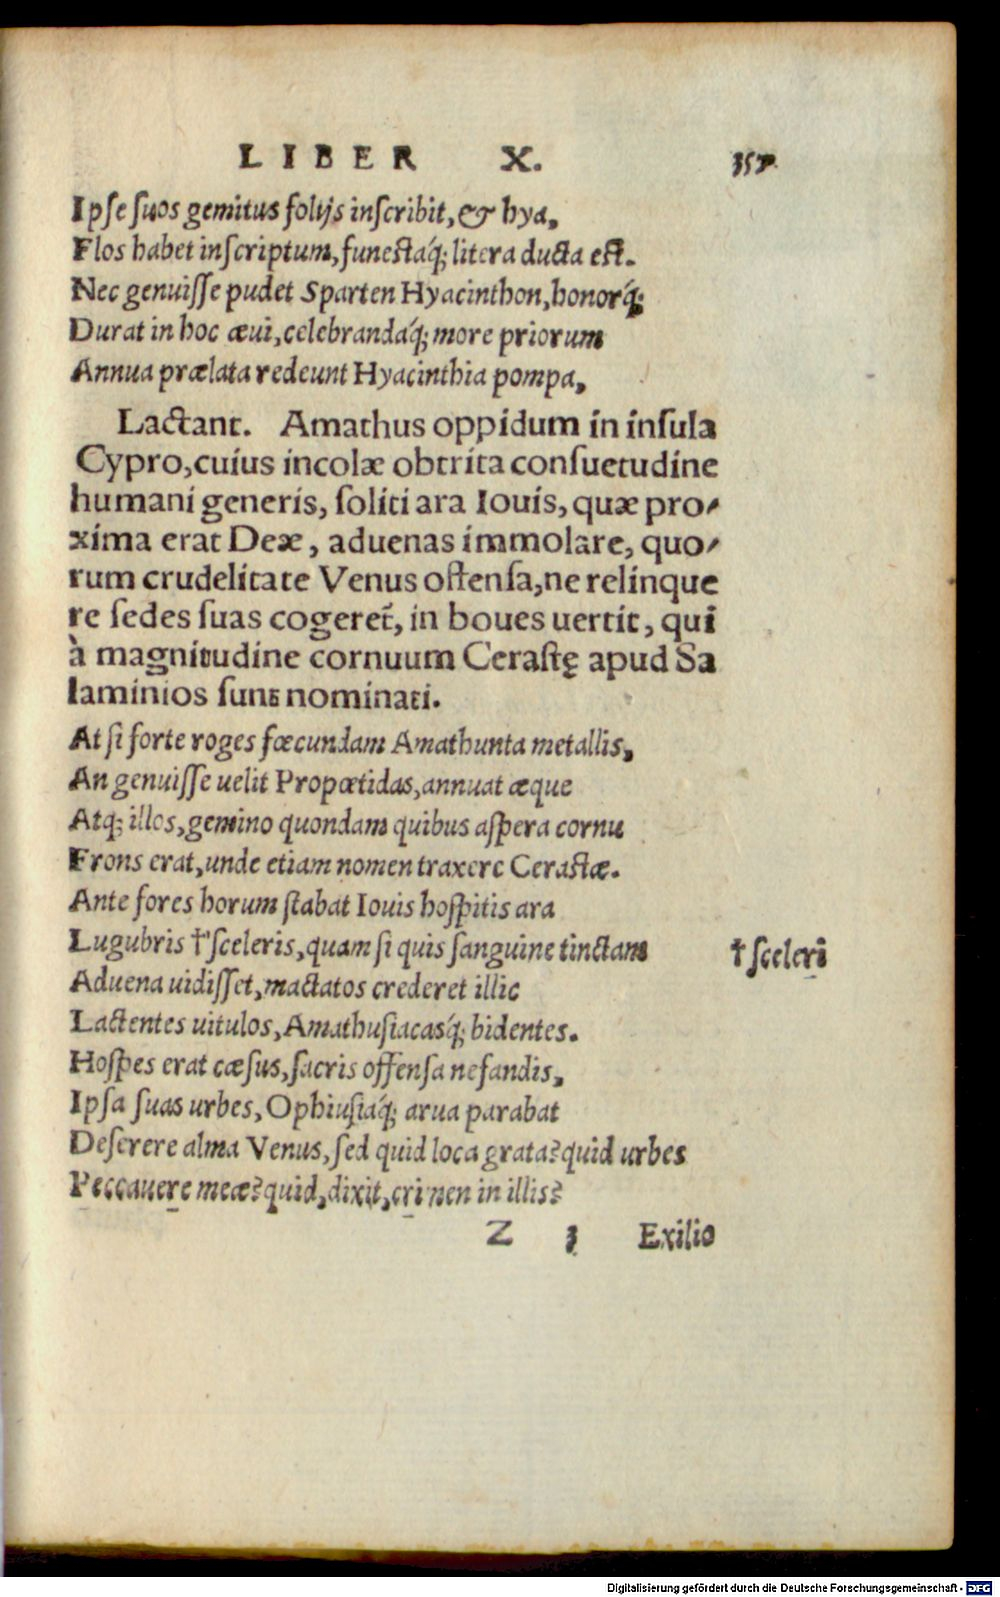 LIBER X. 357
Ipse suos gemitus folijs inscribit, & hya,
Flos habet inscriptum, funestaq́; litera ducta est.
Nec genuisse pudet Sparten Hyacinthon, honorq́;
Durat in hoc æui, celebrandaq́; more priorum
Annua prælata redeunt Hyacinthia pompa,
Lactant. Amathus oppidum in insula
Cypro, cuius incolæ obtrita consuetudine
humani generis, soliti ara Iouis, quæ pro-
xima erat Deæ, aduenas immolare, quo-
rum crudelitate Venus ostensa, ne relinque
re sedes suas cogeret̃, in boues uertit, qui
à magnitudine cornuum Cerastę apud Sa
laminios sunt nominati.
At si forte roges fœcundam Amathunta metallis,
An genuisse uelit Propœtidas, annuat æque
Atq; illos, gemino quondam quibus aspera cornu
Frons erat, unde etiam nomen traxere Cerastæ.
Ante fores horum stabat Iouis hospitis ara
Lugubris †sceleris, quam si quis sanguine tinctam †sceleri
Aduena uidisset, mactatos crederet illic
Lactentes uitulos, Amathusiacasq́; bidentes.
Hospes erat cæsus, sacris offensa nefandis,
Ipsa suas urbes, Ophiusiaq́; arua parabat
Deserere alma Venus, sed quid loca grata? quid urbes
Peccauere meæ? quid, dixit, crimen in illis?
Z 3 Exilio
Digitalisierung gefördert durch die Deutsche Forschungsgemeinschaft - DFG